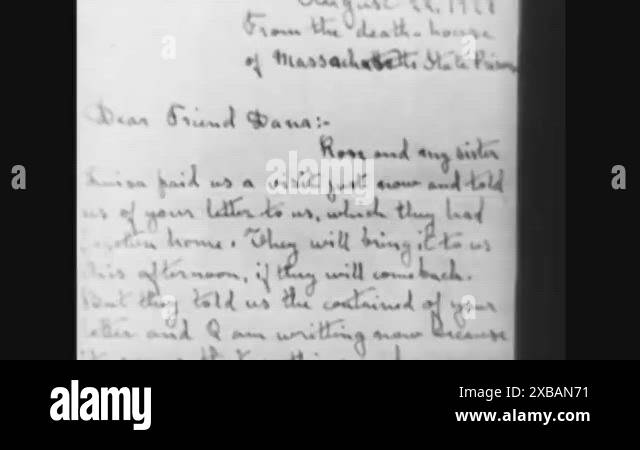 August 22, 1927
From the death-house
of Massachusetts State Prison
Dear Friend Dana:-
Rosa and my sister
Luisa paid us a visit just now and told
us of your letter to us, which they had
forgotten home. They will bring it to us
this afternoon, if they will comeback.
But they told us the contained of your
letter and I am writting now because
alamy
a
a
a
a
Image ID: 2XBAN71
www.alamy.com